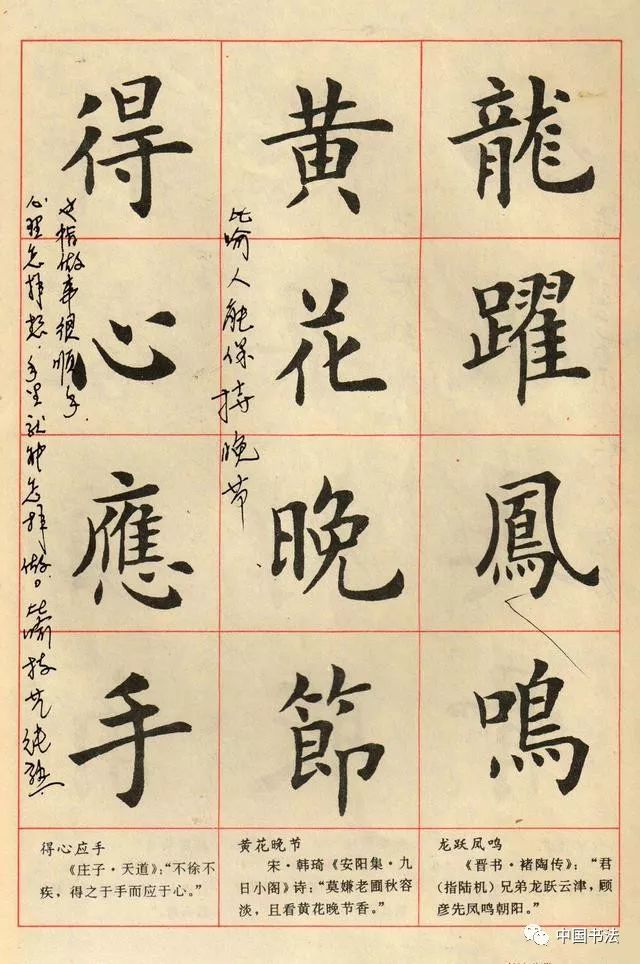 龍躍鳳鳴
黄花晚節
得心應手
比喻人能保持晚节
心里怎样想，手里就能怎样做。比喻技艺纯熟
也指做事很顺手
龙跃凤鸣
《晋书·褚陶传》：“君
（指陆机）兄弟龙跃云津，顾
彦先凤鸣朝阳。”
黄花晚节
宋·韩琦《安阳集·九
日小阁》诗：“莫嫌老圃秋容
淡，且看黄花晚节香。”
得心应手
《庄子·天道》：“不徐不
疾，得之于手而应于心。”
中国书法